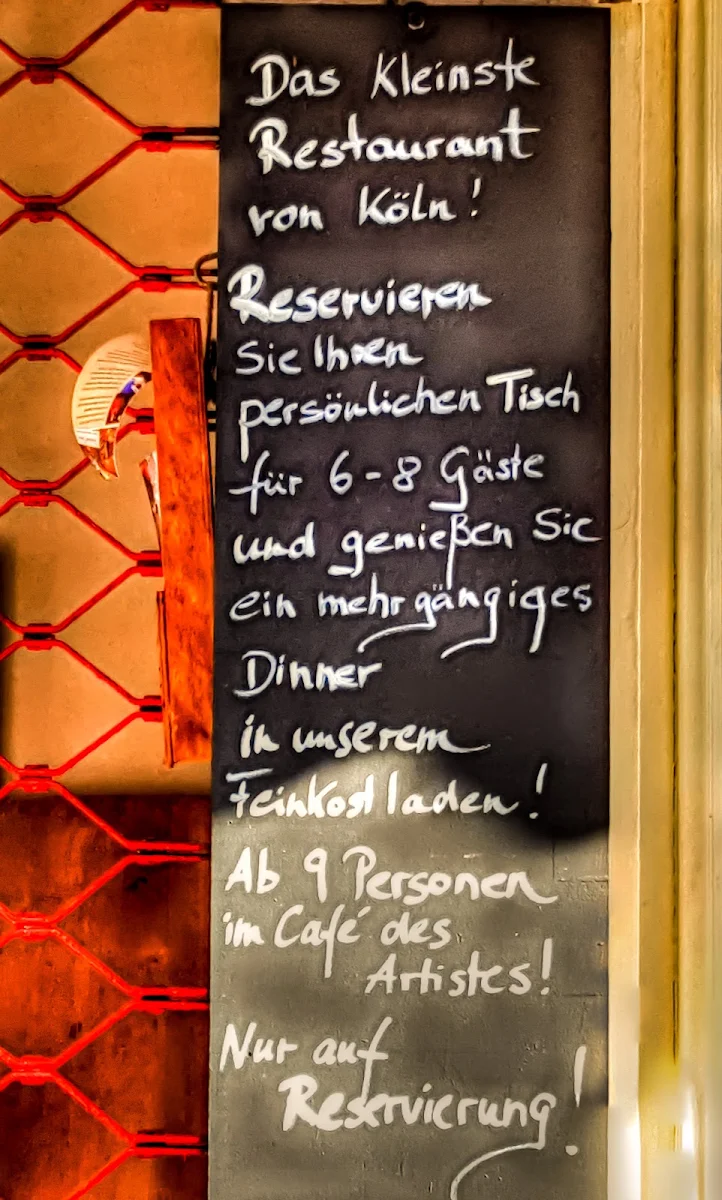 Das Kleinste
Restaurant
von Köln!
Reservieren
Sie Ihren
persönlichen Tisch
für 6-8 Gäste
und genießen Sie
ein mehrgängiges
Dinner
in unserem
Feinkostladen!
Ab 9 Personen
im Café des
Artistes!
Nur auf
Reservierung!